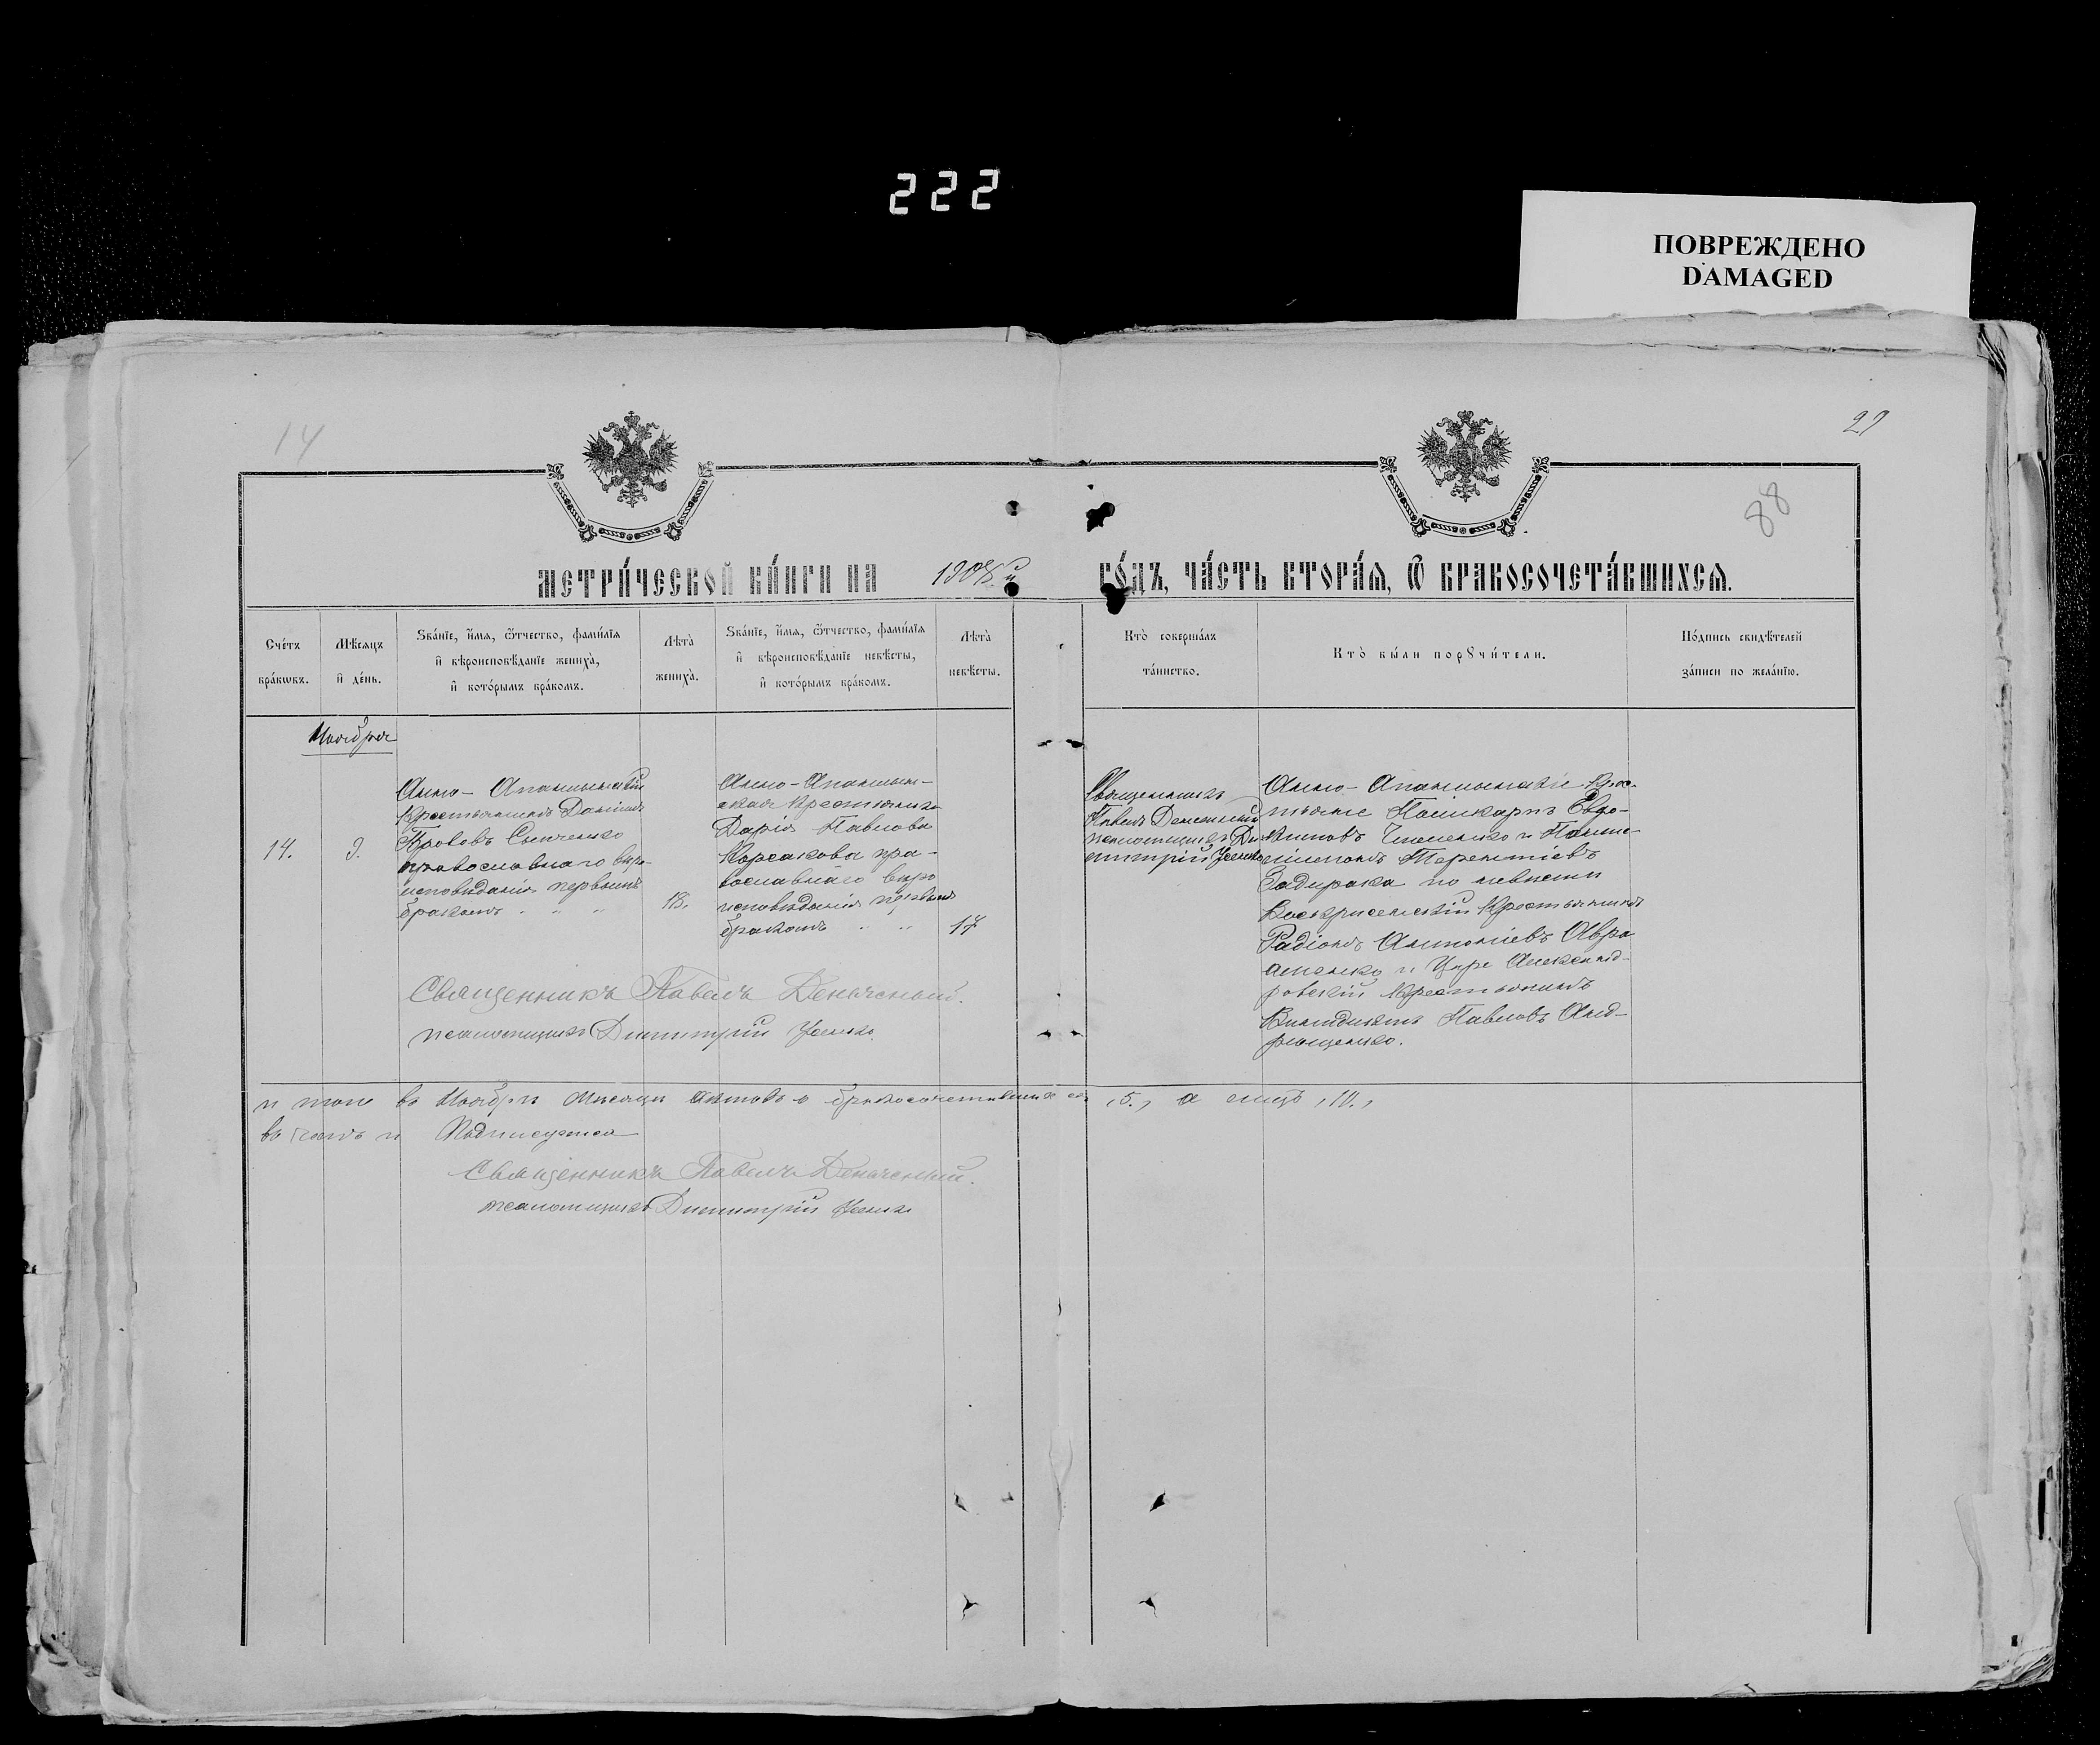 222
ПОВРЕЖДЕНО
DAMAGED
14
88
МЕТРИ́ЧЕСКОЙ КНИ́ГИ НА
ГО́ДЪ, ЧА́СТЬ ВТОРА́Ѧ, Ѿ БРАКОСОЧЕТА́ВШИХСѦ.
Сче́тъ
бра́кѡвъ.
Мѣ́сѧцъ
и҆ де́нь.
Ѕва́нїе, и҆́мѧ, ѻ҆́тчество, фами́лїѧ
и҆ вѣроисповѣ́данїе жениха̀,
и҆ кото́рымъ бра́комъ.
Лѣ́та̀
жениха̀.
Ѕва́нїе, и҆́мѧ, ѻ҆́тчество, фами́лїѧ
и҆ вѣроисповѣ́данїе невѣ́сты,
и҆ кото́рымъ бра́комъ.
Лѣ́та̀
невѣ́сты.
Кто̀ соверша́лъ
та́инство.
Кто̀ бы́ли порꙋчи́тели.
По́дпись свидѣ́телей
за́писи по жела́нїю.
Ноября
14.
9.
Анно-
Крестьянинъ Данiилъ
Прововъ
православнаго вѣро-
исповѣданія первымъ
бракомъ
18.
Анно-
ская крестьянка
Дарія Павлова
Корсакова пра-
вославнаго вѣро
исповѣданія первымъ
бракомъ
17
Священникъ
Павелъ
псаломщикъ Ди
митрій Усенко
Анно-
Поликарпъ Евдо-
кимовъ
Терентіевъ
Задирака по невѣстѣ
Крестьянинъ
Радіонъ Антоніевъ Авра
менко и Царе Александ-
ровскій крестьянинъ
Павловъ Анд-
рющенко.
Священникъ Павелъ
псаломщикъ Димитрій Усенко.
и того въ Ноябрѣ мѣсяцѣ актовъ о бракосочетавшихся „5„ а лицъ „10„
въ чемъ и Подписуемся
Священникъ Павелъ
псаломщикъ Димитрій Усенко